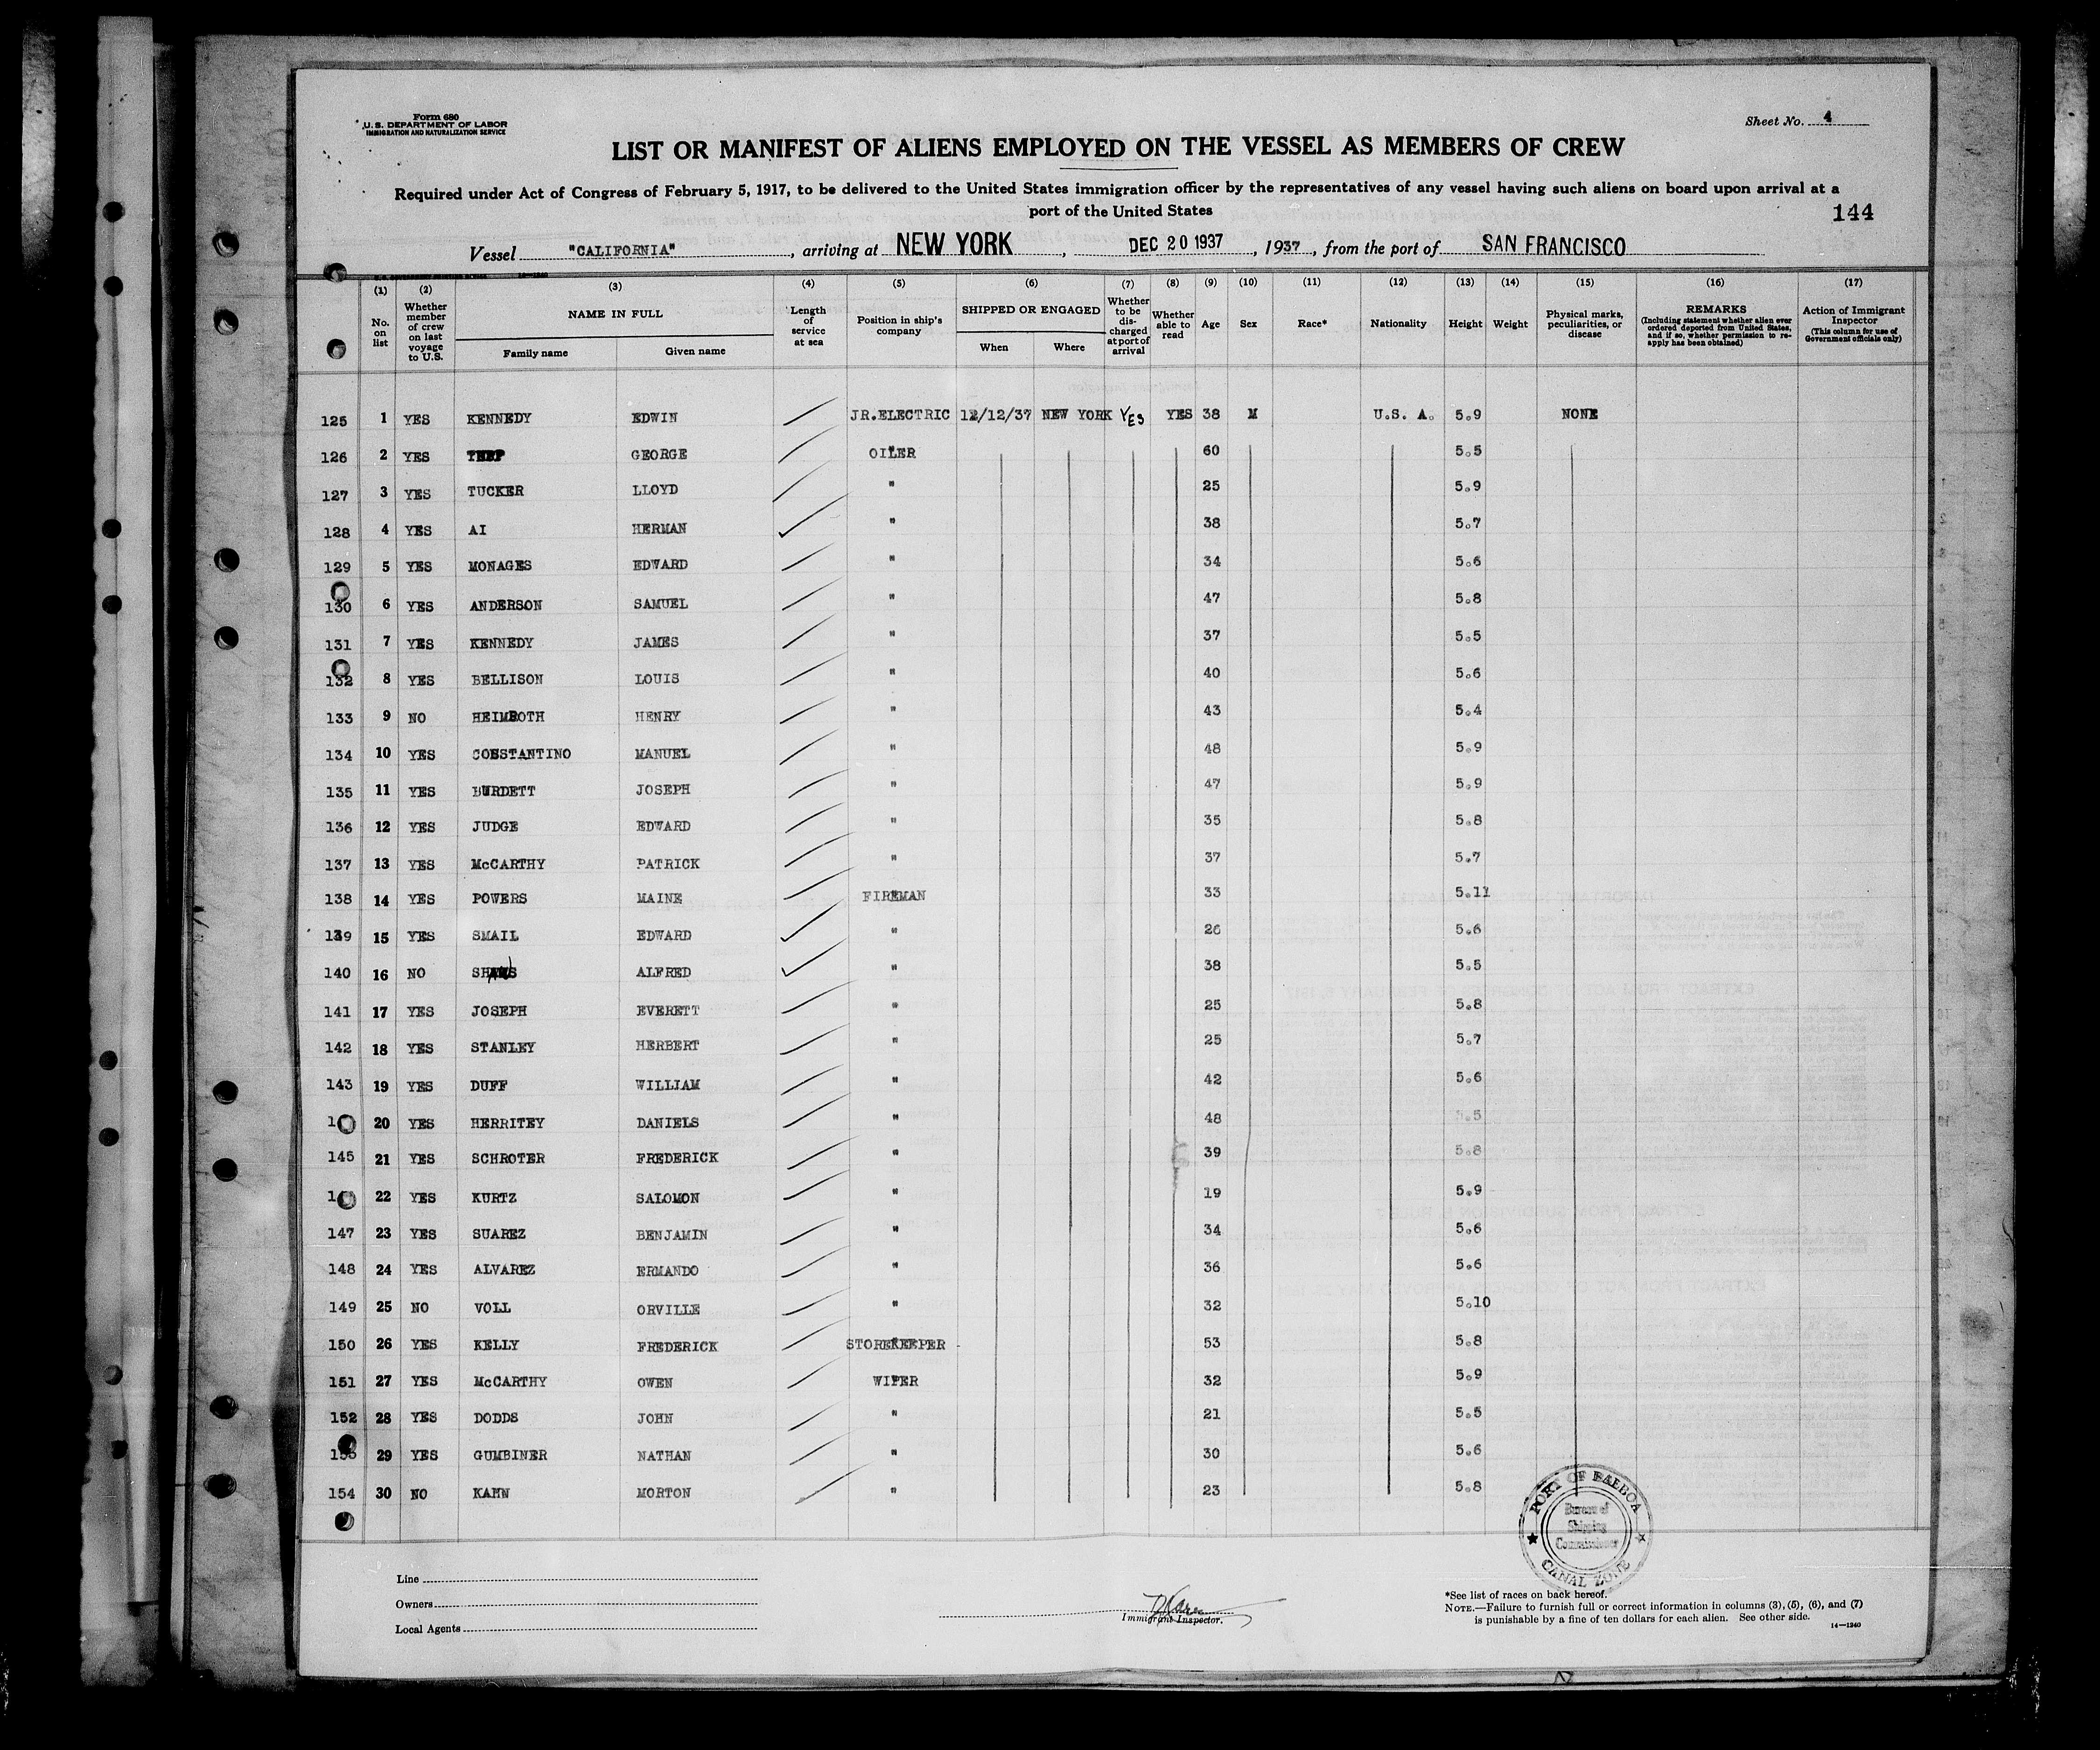 Form 680
U.S. DEPARTMENT OF LABOR
IMMIGRATION AND NATURALIZATION SERVICE
Sheet No. 4
LIST OR MANIFEST OF ALIENS EMPLOYED ON THE VESSEL AS MEMBERS OF CREW
Required under Act of Congress of February 5, 1917, to be delivered to the United States immigration officer by the representatives of any vessel having such aliens on board upon arrival at a
port of the United States
144
Vessel "CALIFORNIA", arriving at NEW YORK, DEC 20 1937, 1937, from the port of SAN FRANCISCO
(1) (2) (3) (4) (5) (6) (7) (8) (9) (10) (11) (12) (13) (14) (15) (16) (17)
No. on list
Whether member of crew on last voyage to U.S.
NAME IN FULL
Family name
Given name
Length of service at sea
Position in ship's company
SHIPPED OR ENGAGED
When
Where
Whether to be discharged at port of arrival
Whether able to read
Age
Sex
Race*
Nationality
Height
Weight
Physical marks, peculiarities, or disease
REMARKS
(Including statement whether alien ever ordered deported from United States, and if so, whether permission to reapply has been obtained)
Action of Immigrant Inspector
(This column for use of Government officials only)
125 1 YES KENNEDY EDWIN JR.ELECTRIC 12/12/37 NEW YORK YES YES 38 M U.S. A. 5.9 NONE
126 2 YES GEORGE OILER 60 5.5
127 3 YES TUCKER LLOYD " 25 5.9
128 4 YES AI HERMAN " 38 5.7
129 5 YES MONAGES EDWARD " 34 5.6
130 6 YES ANDERSON SAMUEL " 47 5.8
131 7 YES KENNEDY JAMES " 37 5.5
132 8 YES BELLISON LOUIS " 40 5.6
133 9 NO HEIMROTH HENRY " 43 5.4
134 10 YES MANUEL " 48 5.9
135 11 YES BURDETT JOSEPH " 47 5.9
136 12 YES JUDGE EDWARD " 35 5.8
137 13 YES McCARTHY PATRICK " 37 5.7
138 14 YES POWERS MAINE FIREMAN 33 5.11
139 15 YES SMAIL EDWARD " 26 5.6
140 16 NO ALFRED " 38 5.5
141 17 YES JOSEPH EVERETT " 25 5.8
142 18 YES STANLEY HERBERT " 25 5.7
143 19 YES DUFF WILLIAM " 42 5.6
20 YES HERRITEY DANIELS " 48 5.5
145 21 YES SCHROTER FREDERICK " 39 5.8
22 YES KURTZ SALOMON " 19 5.9
147 23 YES SUAREZ BENJAMIN " 34 5.6
148 24 YES ALVAREZ ERMANDO " 36 5.6
149 25 NO VOLL ORVILLE " 32 5.10
150 26 YES KELLY FREDERICK STOREKEEPER 53 5.8
151 27 YES McCARTHY OWEN WIPER 32 5.9
152 28 YES DODDS JOHN " 21 5.5
29 YES GUMBINER NATHAN " 30 5.6
154 30 NO KAHN MORTON " 23 5.8
PORT OF BALBOA
Bureau of
Shipping
Commissioner
CANAL ZONE
Line
Owners
Local Agents
Immigrant Inspector.
*See list of races on back hereof.
NOTE.—Failure to furnish full or correct information in columns (3), (5), (6), and (7)
is punishable by a fine of ten dollars for each alien. See other side.
14—1240